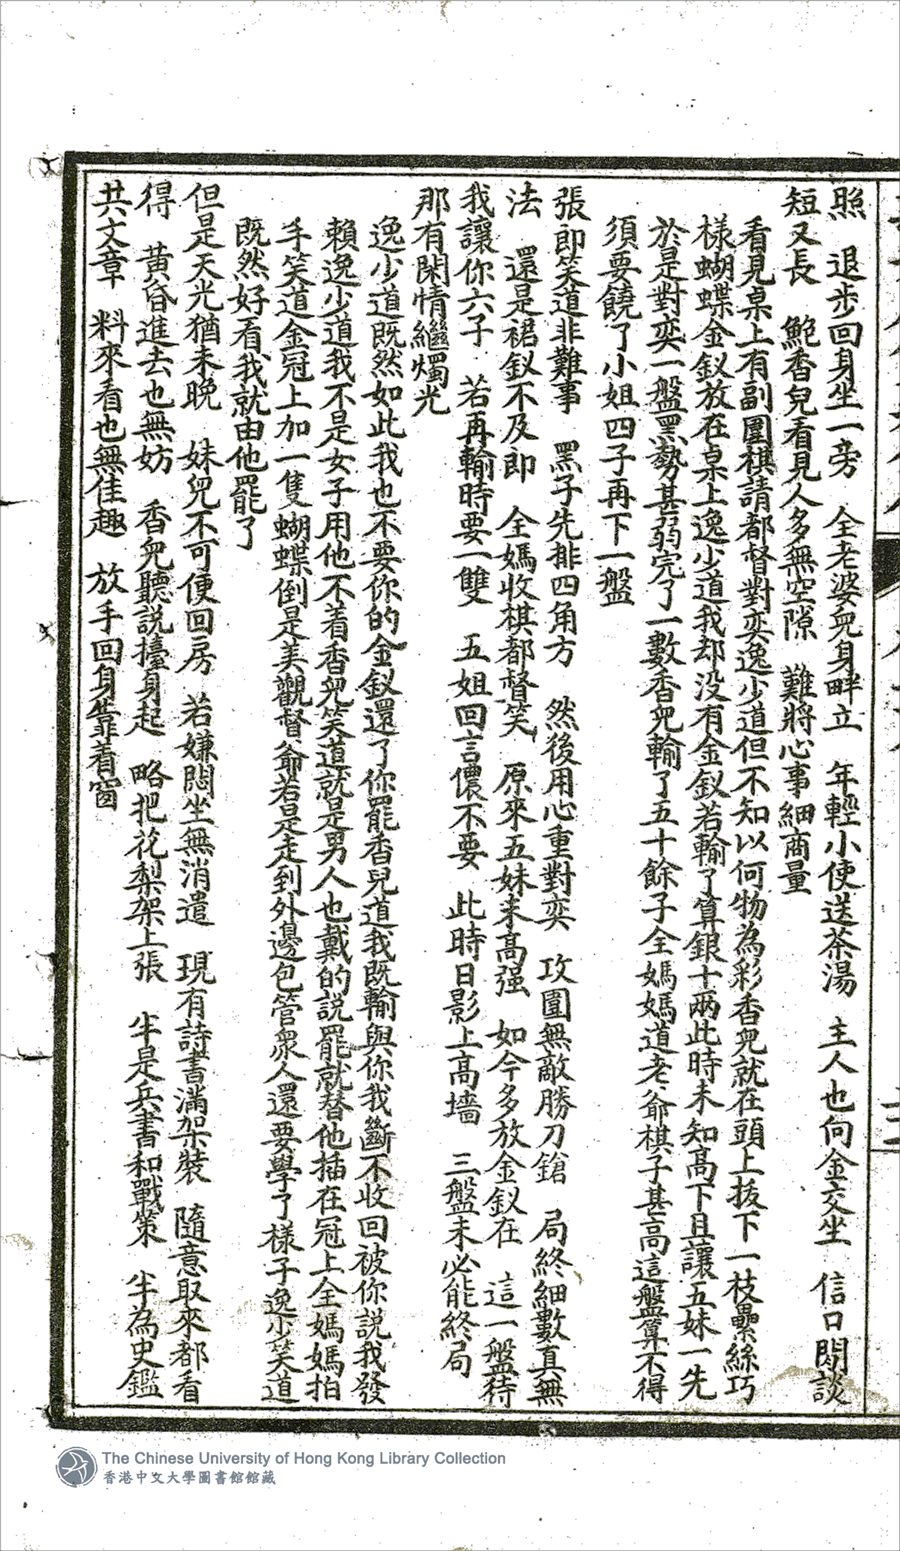 照　退步回身坐一旁　全老婆兒身畔立　年輕小使送茶湯　主人也向金交坐　信口閒談
短又長　鮑香兒看見人多無空隙　難將心事細商量
看見桌上有副圍棋請都督對奕逸少道但不知以何物為彩香兒就在頭上拔下一枝纍絲巧
樣蝴蝶金釵放在桌上逸少道我却没有金釵若輸了算銀十兩此時未知高下且讓五妹一先
於是對奕一盤黑勢甚弱完了一數香兒輸了五十餘子全媽媽道老爺棋子甚高這盤算不得
須要饒了小姐四子再下一盤
張即笑道非難事　黑子先排四角方　然後用心重對奕　攻圍無敵勝刀鎗　局終細數真無
法　還是裙釵不及郎　全媽收棋都督笑　原來五妹未高强　如今多放金釵在　這一盤待
我讓你六子　若再輸時要一雙　五姐回言儂不要　此時日影上高墻　三盤未必能終局
那有閑情繼燭光
逸少道既然如此我也不要你的金釵還了你罷香兒道我既輸與你我斷不收回被你説我發
賴逸少道我不是女子用他不着香兒笑道就是男人也戴的説罷就替他插在冠上全媽媽拍
手笑道金冠上加一隻蝴蝶倒是美觀督爺若是走到外邊包管衆人還要學了樣子逸少笑道
既然好看我就由他罷了
但是天光猶未晚　妹兒不可便回房　若嫌悶坐無消遣　現有詩書滿架裝　隨意取來都看
得　黄昏進去也無妨　香兒聽説擡身起　略把花梨架上張　半是兵書和戰策　半為史鑑
共文章　料來看也無佳趣　放手回身靠着窗
The Chinese University of Hong Kong Library Collection
香港中文大學圖書館館藏